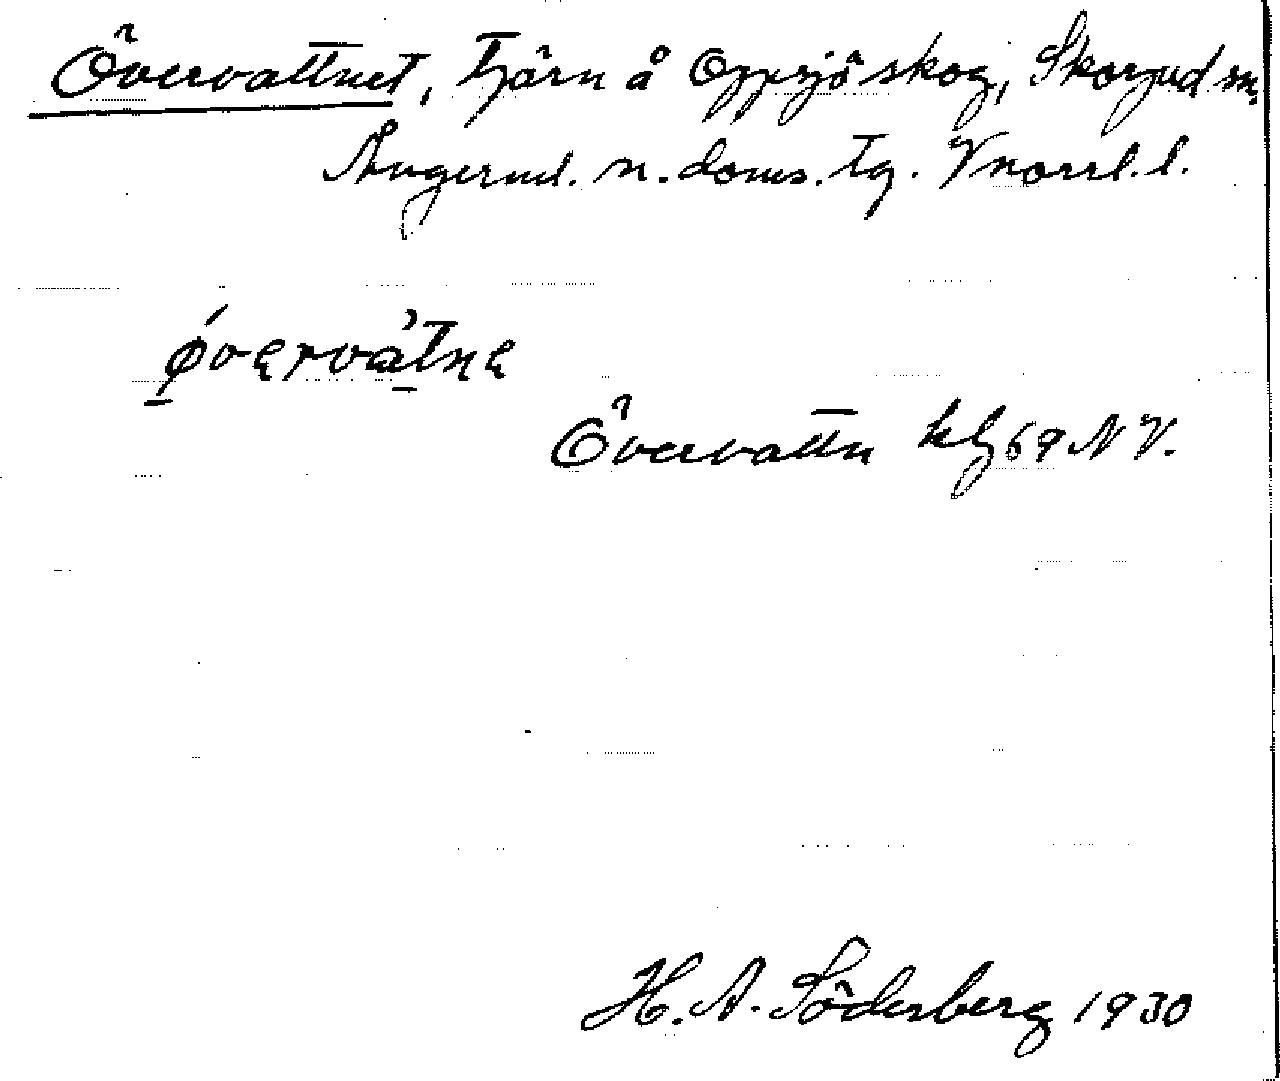 Övervattnet, Tjärn å Oppsjö skog, Skorped sn,
Ångerml. n. doms. tg. Vnorrl. l.
Övervattn kbl 69 NV.
H. A. Söderberg 1930